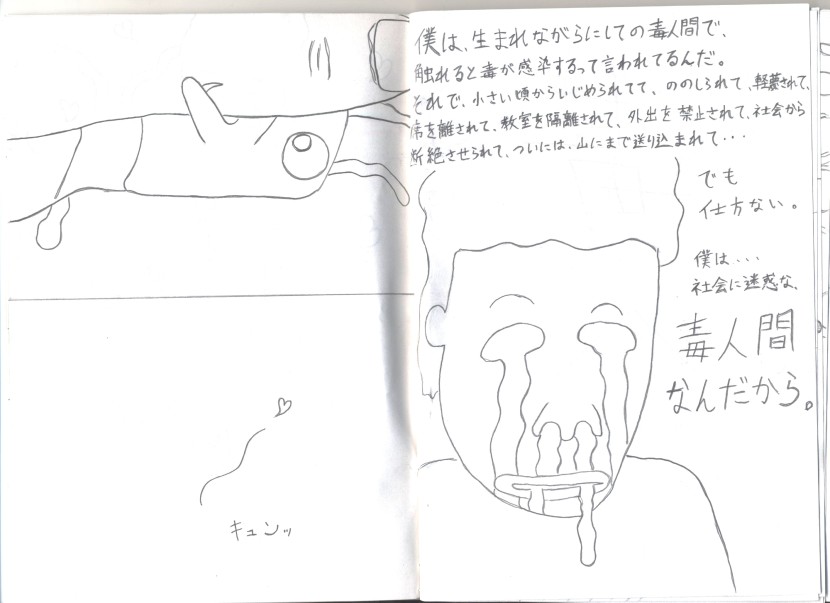 僕は、生まれながらにしての毒人間で、
触れると毒が感染するって言われてるんだ。
それで、小さい頃からいじめられてて、ののしられて、軽蔑されて、
席を離されて、教室を隔離されて、外出を禁止されて、社会から
断絶させられて、ついには、山にまで送り込まれて・・・
でも
仕方ない。
僕は・・・
社会に迷惑な、
毒人間
なんだから。
キュンッ